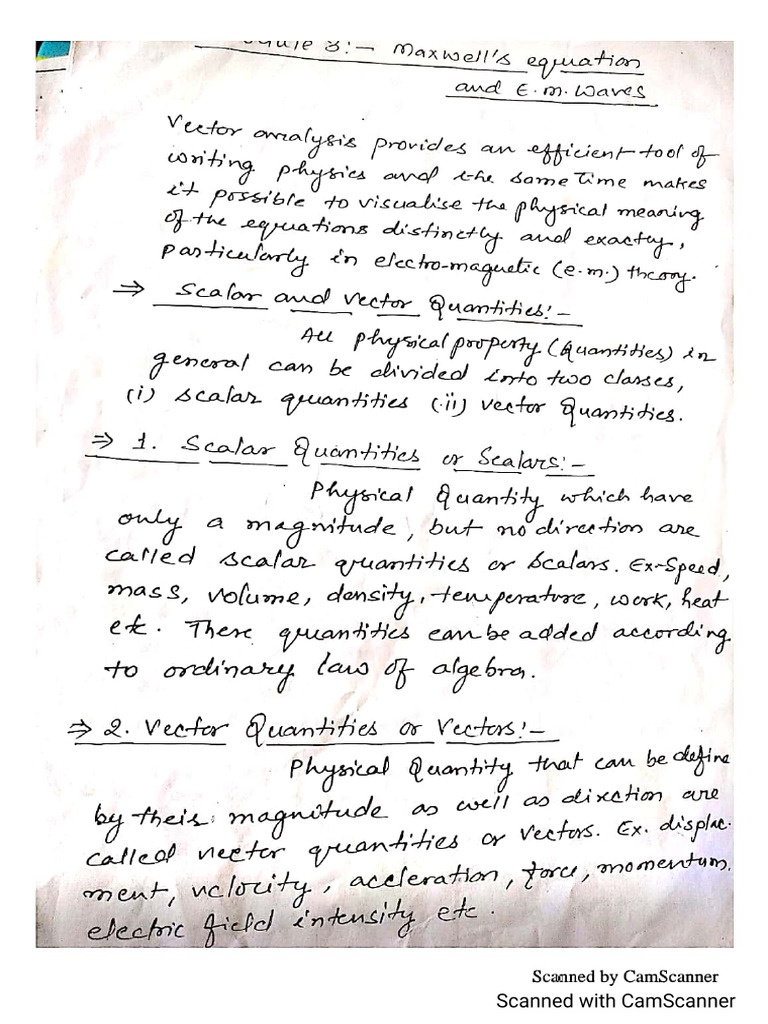 odule 3:- Maxwell's equation
and E.m. Waves
Vector analysis provides an efficient tool of
writing physics and the same time makes
it possible to visualise the physical meaning
of the equations distinctly and exactly,
particularly in electro-magnetic (e.m.) theory.
⇒ Scalar and Vector Quantities:-
All physical property (Quantities) in
general can be divided into two classes,
(i) scalar quantities (ii) vector Quantities.
⇒ 1. Scalar Quantities or Scalars:-
Physical Quantity which have
only a magnitude, but no direction are
called scalar quantities or Scalars. Ex-Speed,
mass, volume, density, temperature, work, heat
etc. These quantities can be added according
to ordinary law of algebra.
⇒ 2. Vector Quantities or Vectors:-
Physical Quantity that can be define
by theis magnitude as well as dixction are
called vector quantities or vectors. Ex. displac-
ment, velocity, acceleration, force, momentum,
electric field intensity etc.
Scanned by CamScanner
Scanned with CamScanner